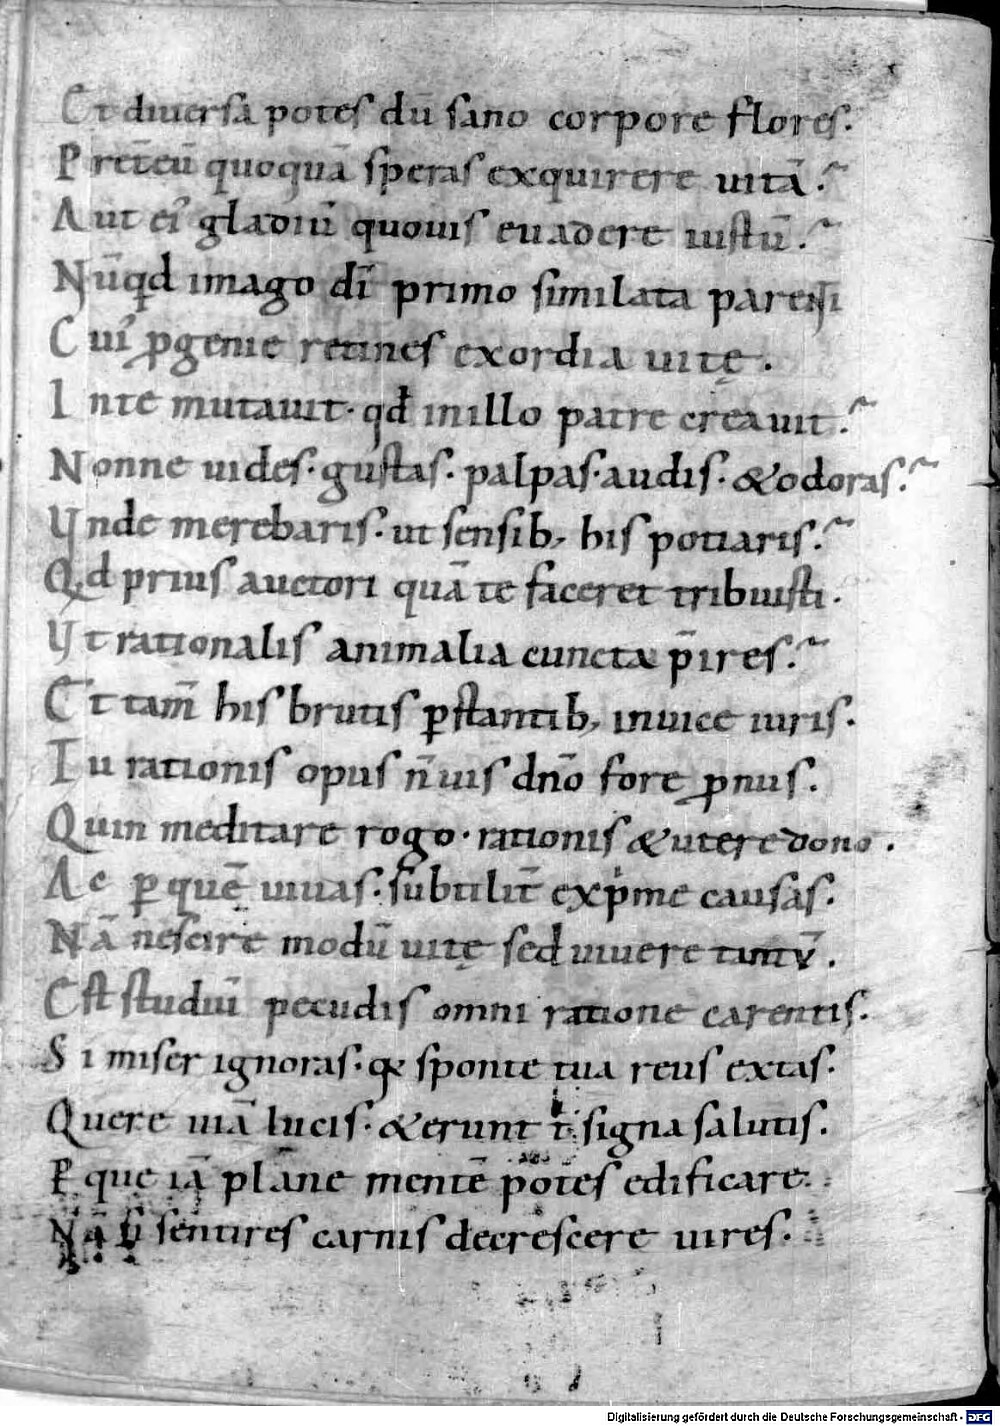 Et diuersā potes dū sano corpore flores.
P reteū quoquā speras exquirere uitā.
A ut ei gladiū quouis euadere iustū.
Nūqd imago dī primo similata parenti
C ui ꝓgenie retines exordia uitę.
I nte mutauit· qđ inillo patre creauit.
Nonne uides· gustas· palpas· audis· &odoras.
Vnde merebaris· ut sensib; his potiaris.
Qd prius auctori quā te faceret tribuisti.
Vt rationalis animalia cuncta p̄ires.
Et tam̄ his brutis p̱stantib; inuice iuris.
Tu rationis opus n̄uis dn̄o fore ꝓnus.
Quin meditare rogo· rationis &utere dono.
Ac ꝑ quē uiuas· subtilit̄ exp̱me causas.
Nā nescire modū uitę sed uiuere tantū.
Est studiū pecudis omni ratione carentis.
Si miser ignoras· qꝫ sponte tua reus extas.
Quere uiā lucis· &erunt t̄ signa salutis.
P que iā plane mentē potes edificare.
sentires carnis decrescere uires.
Digitalisierung gefördert durch die Deutsche Forschungsgemeinschaft - DFG